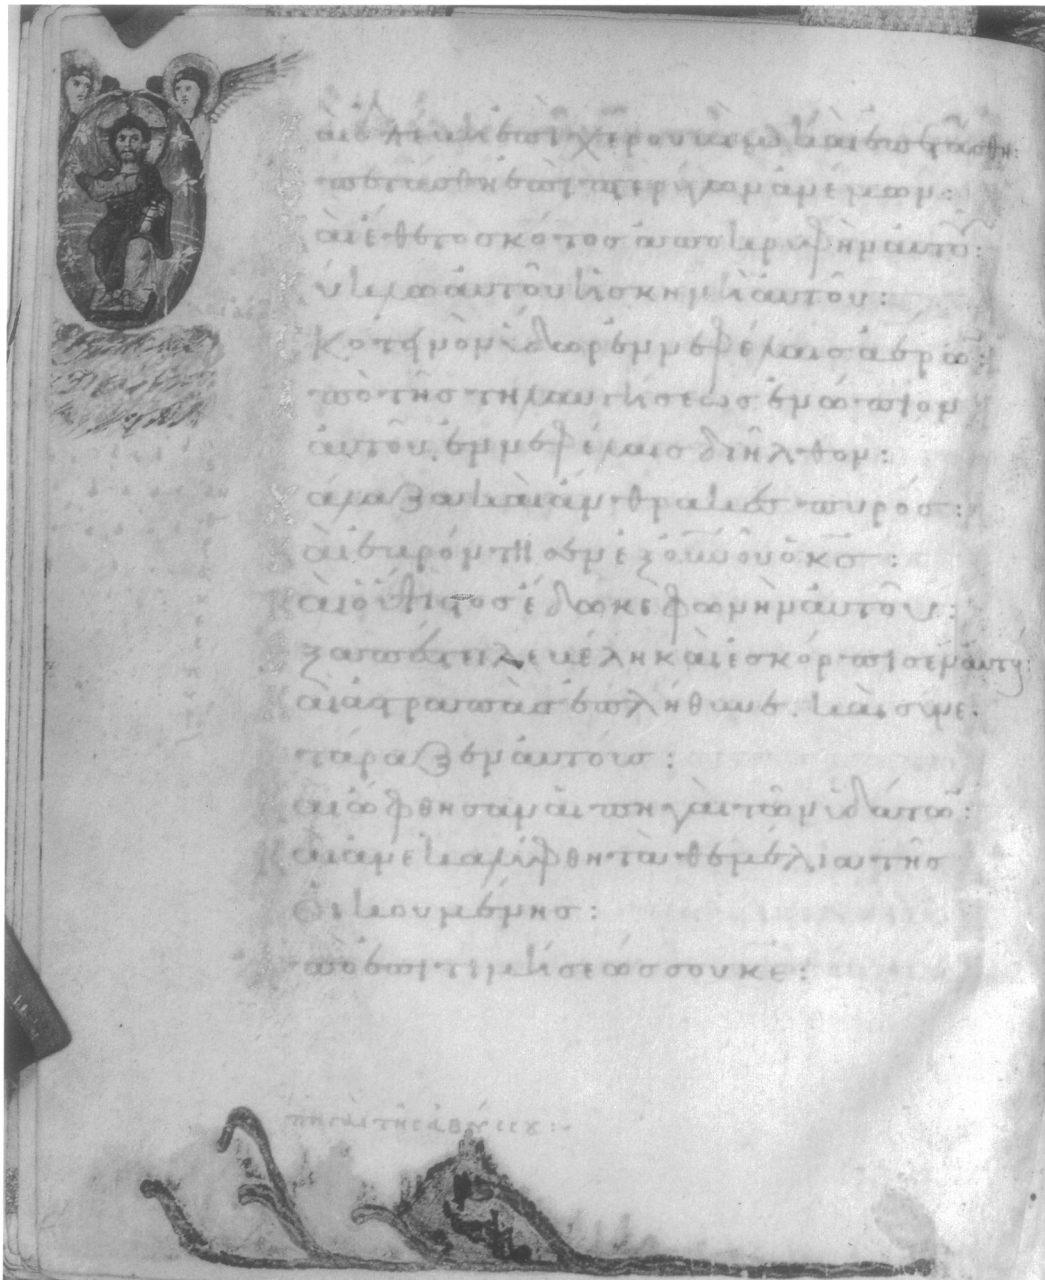 αὶ ἐπέβη ἐπὶ χερουβὶμ καὶ ἐπετάσθη:
πετάσθη ἐπὶ πτερύγων ἀνέμων:
αὶ ἔθετο σκότος ἀποκρυφὴν αὐτοῦ:
ύκλω αὐτοῦ ἡ σκηνὴ αὐτοῦ:
κοτεινὸν ὕδωρ ἐν νεφέλαις ἀέρων:
πὸ τῆς τηλαυγήσεως ἐνώπιον
αὐτοῦ ἐν νεφέλαις διῆλθον:
άλαζα καὶ ἄνθρακες πυρός:
αὶ ἐβρόντησεν ἐξ οὐνοῦ ὁ κς:
αὶ ὁ ὕψιστος ἔδωκε φωνὴν αὐτοῦ:
ξαπέστειλε βέλη καὶ ἐσκόρπισεν αὐτούς:
αὶ ἀστραπὰς ἐπλήθυνε. καὶ συνε
τάραξεν αὐτούς:
αὶ ὤφθησαν αἱ πηγαὶ τῶν ὑδάτων:
αὶ ἀνεκαλύφθη τὰ θεμέλια τῆς
οἰκουμένης:
πὸ ἐπιτιμήσεώς σου κε:
πηγαι της αβύσσου: